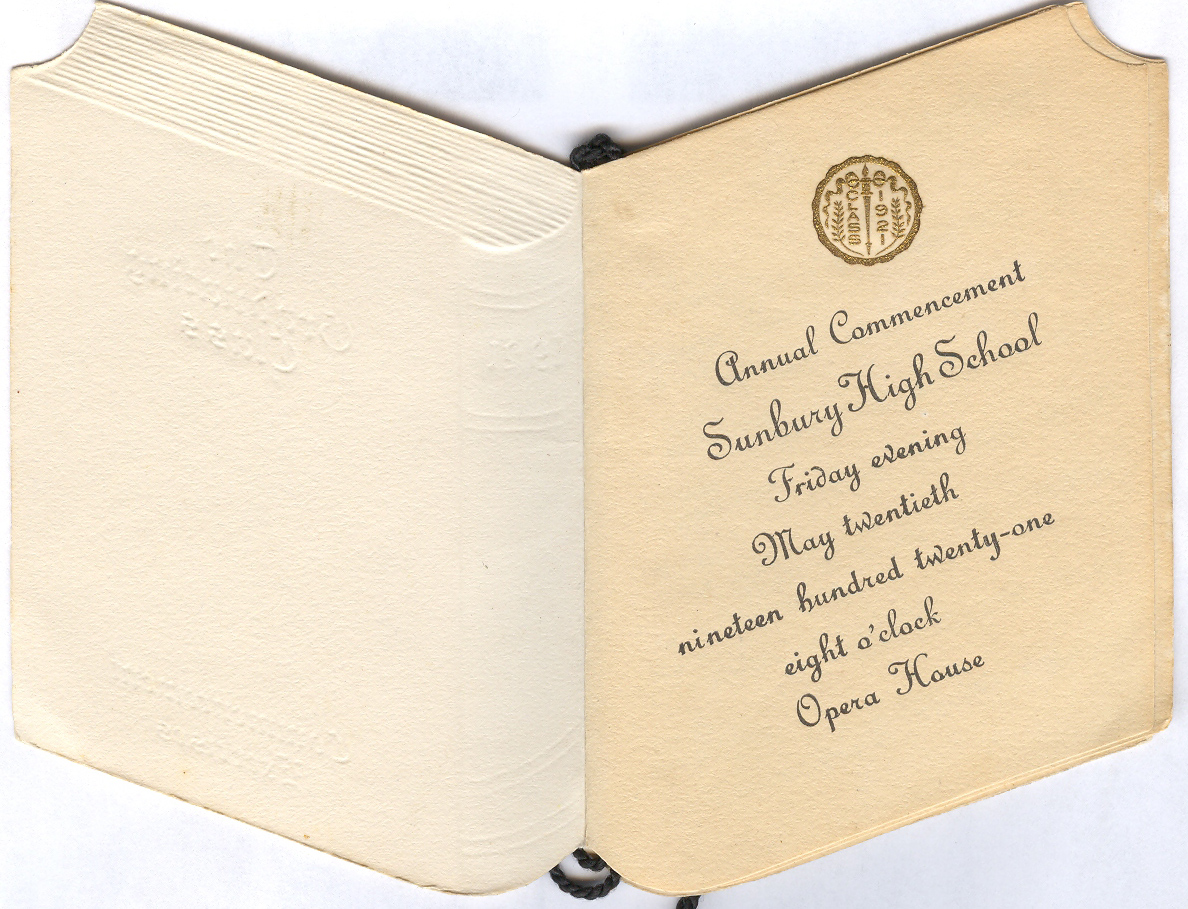 CLASS 1921
Annual Commencement
Sunbury High School
Friday evening
May twentieth
nineteen hundred twenty-one
eight o'clock
Opera House